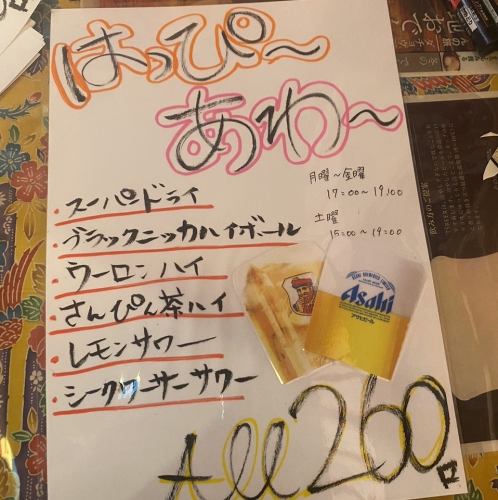 はっぴ〜
あわ〜
月曜〜金曜
17:00〜19:00
土曜
15:00〜19:00
・スーパードライ
・ブラックニッカハイボール
・ウーロンハイ
・さんぴん茶ハイ
・レモンサワー
・シークワーサーサワー
Asahi
アサヒビール
All 260